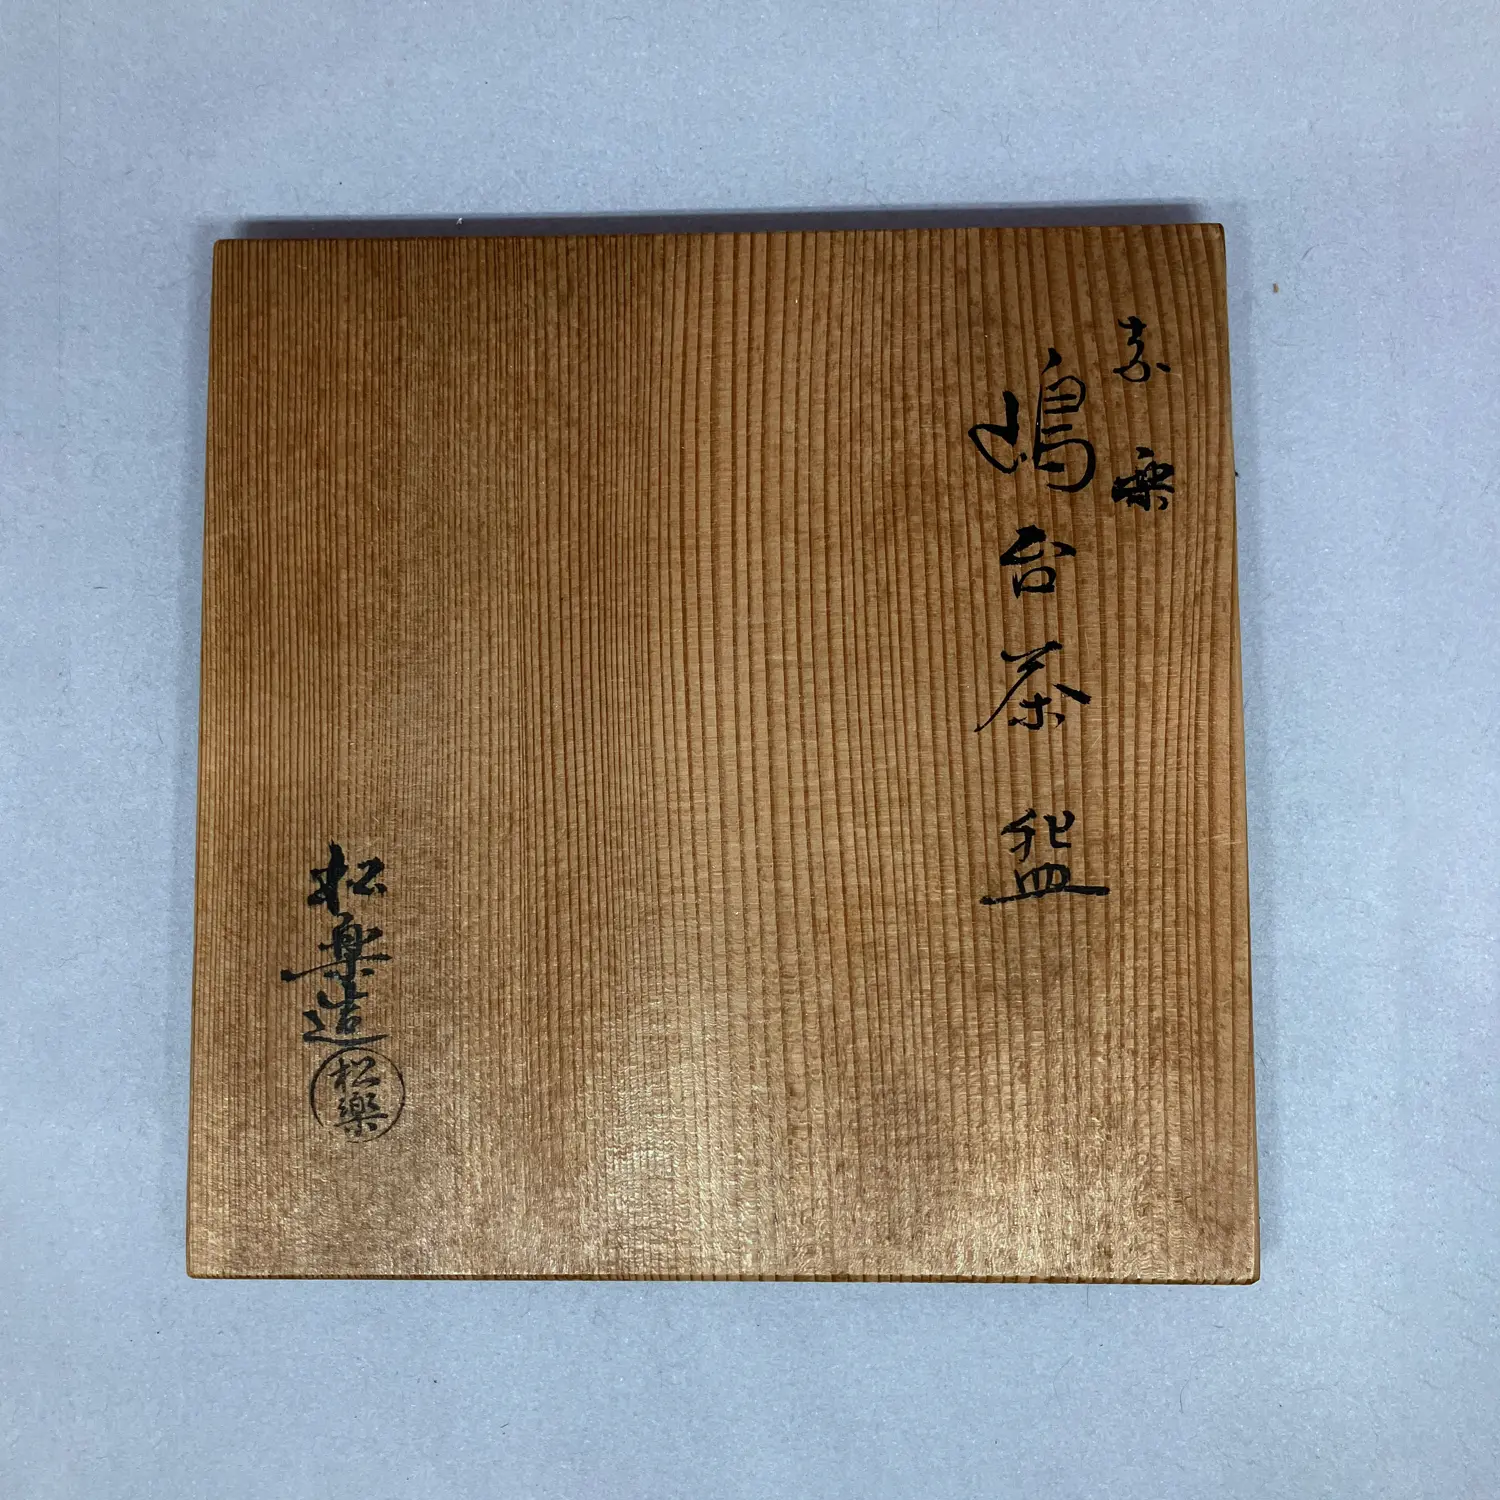 赤楽
嶋台茶盌
松楽造
松樂